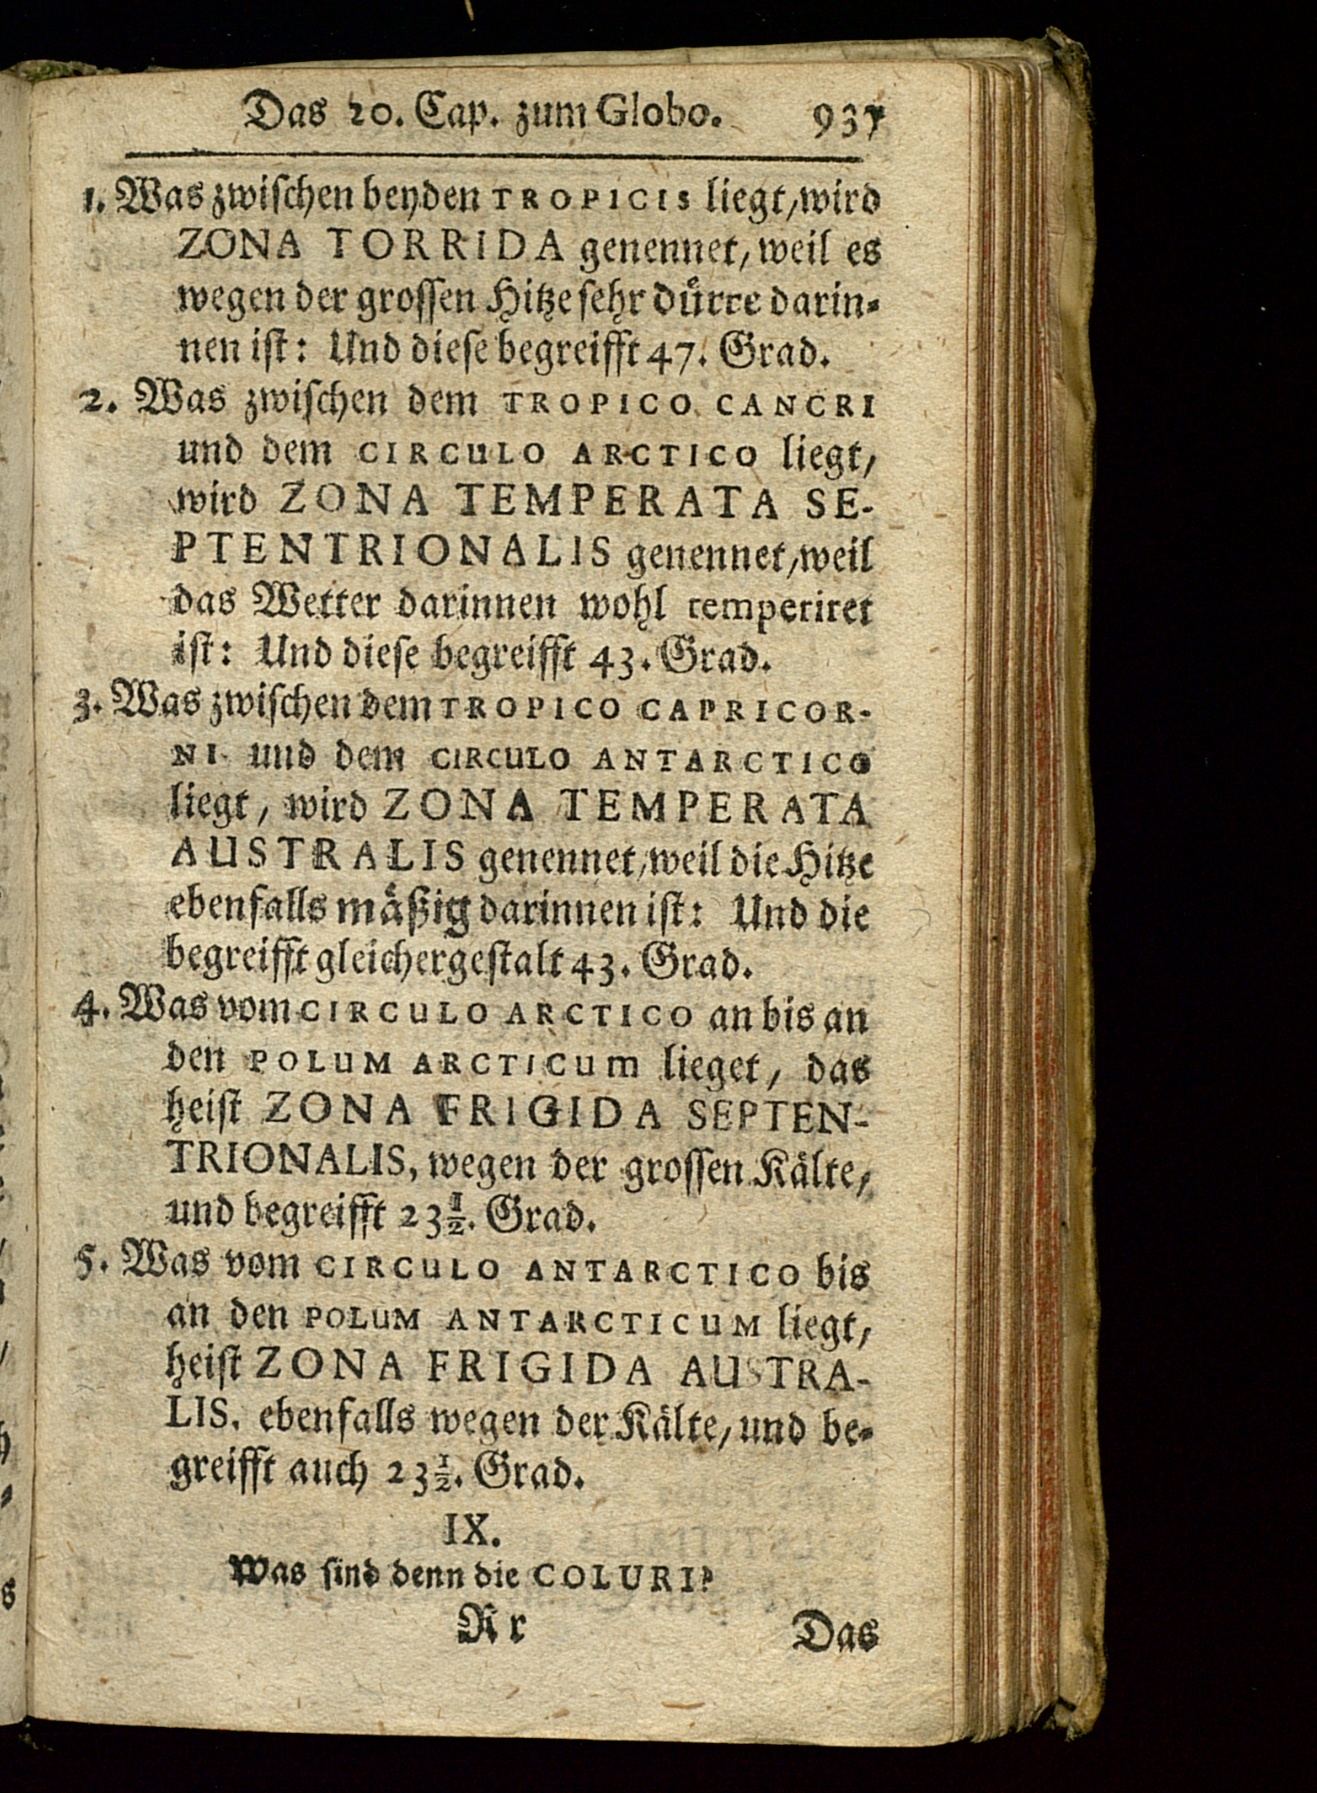 Das 20. Cap. zum Globo. 937
1. Was zwischen beyden TROPICIS liegt/wird
ZONA TORRIDA genennet/weil es
wegen der grossen Hitze sehr dürre darin-
nen ist: Und diese begreifft 47. Grad.
2. Was zwischen dem TROPICO CANCRI
und dem CIRCULO ARCTICO liegt/
wird ZONA TEMPERATA SE-
PTENTRIONALIS genennet/weil
das Wetter darinnen wohl temperiret
ist: Und diese begreifft 43. Grad.
3. Was zwischen dem TROPICO CAPRICOR-
NI und dem CIRCULO ANTARCTICO
liegt/ wird ZONA TEMPERATA
AUSTRALIS genennet/weil die Hitze
ebenfalls mäßig darinnen ist: Und die
begreifft gleichergestalt 43. Grad.
4. Was vom CIRCULO ARCTICO an bis an
den POLUM ARCTICum lieget/ das
heist ZONA FRIGIDA SEPTEN-
TRIONALIS, wegen der grossen Kälte/
und begreifft 23½. Grad.
5. Was vom CIRCULO ANTARCTICO bis
an den POLUM ANTARCTICUM liegt/
heist ZONA FRIGIDA AUSTRA-
LIS, ebenfalls wegen der Kälte/und be-
greifft auch 23½. Grad.
IX.
Was sind denn die COLURI?
Rr Das